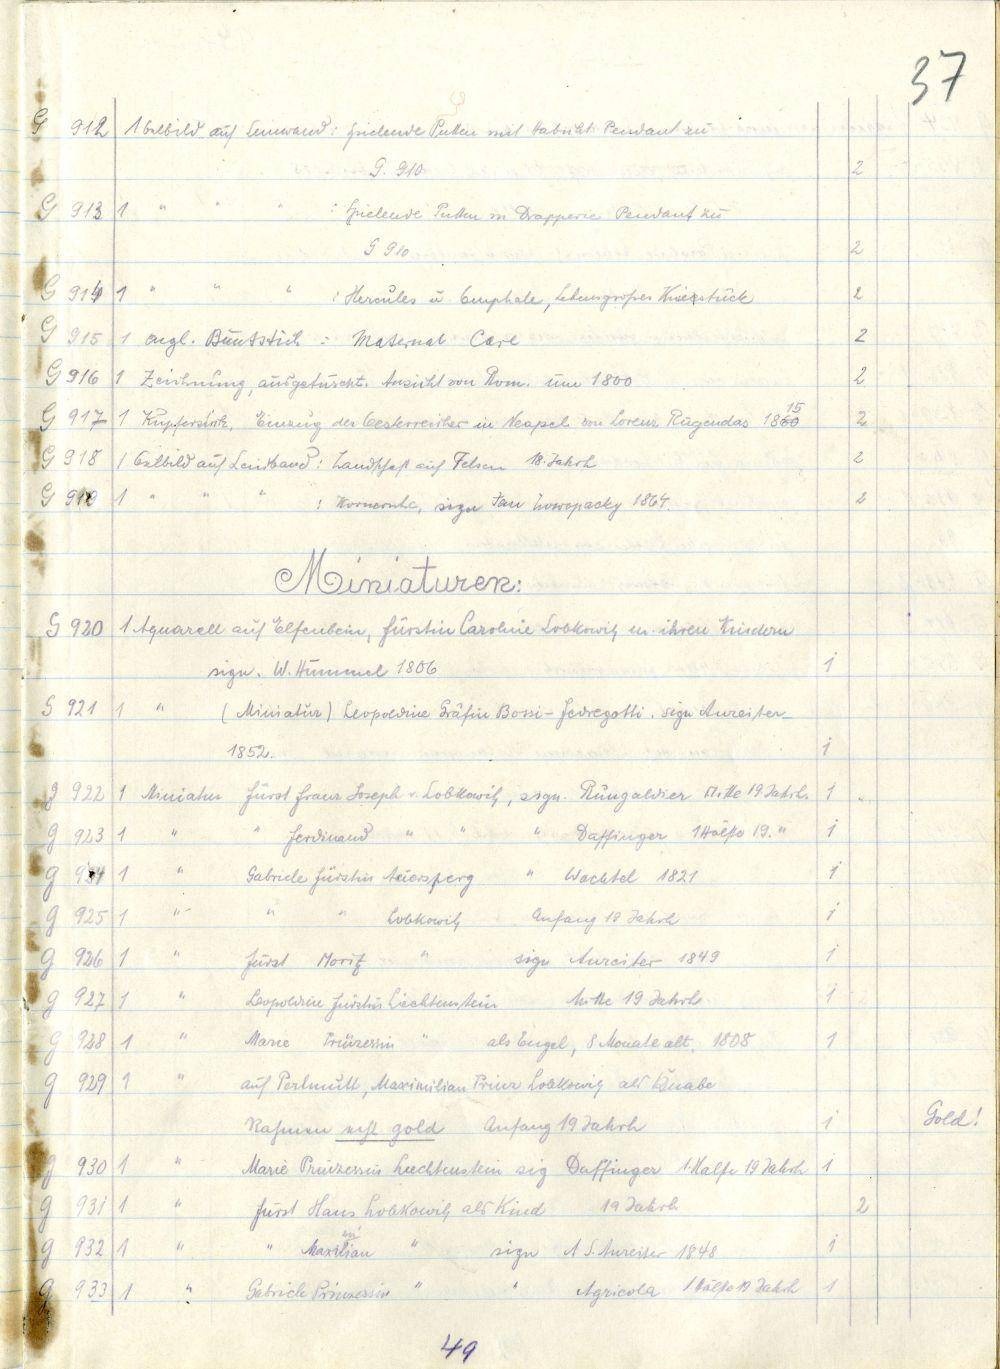 37
G 912 1 Oelbild auf Leinwand: spielende Putten mit Habicht Pendant zu
G. 910 2
G 913 1 " " " : spielende Putten m Drapperie Pendant zu
G 910 2
G 914 1 " " " : Hercules u Omphale, Lebensgroßes Kniestück 2
G 915 1 engl. Buntstich : Maternal Care 2
G 916 1 Zeichnung, ausgetuscht. Ansicht von Rom. um 1800 2
G 917 1 Kupferstich, Einzug der Oesterreicher in Neapel von Lorenz Rugendas 1815 2
G 918 1 Oelbild auf Leinwand: Landschaft auf Felsen 18. Jahrh 2
G 919 1 " " " : sign Jan Novopacky 1864. 2
Miniaturen:
G 920 1 Aquarell auf Elfenbein, Fürstin Caroline Lobkowitz m. ihren Kindern
sign. W. Hummel 1806 1
G 921 1 " (Miniatur) Leopoldine Gräfin Bossi-Fedregotti. sign Anreiter
1852. 1
g 922 1 Miniatur Fürst Franz Joseph v. Lobkowitz, sign. Rungaldier Mitte 19 Jahrh. 1
g 923 1 " " Ferdinand " " " Daffinger 1 Hälfte 19. " 1
g 924 1 " Gabriele Fürstin Auersperg " Wachtel 1821 1
g 925 1 " " " Lobkowitz Anfang 18 Jahrh 1
g 926 1 " Fürst Moritz " sign Anreiter 1849 1
g 927 1 " Leopoldine Fürstin Liechtenstein Mitte 19 Jahrh. 1
g 928 1 " Marie Prinzessin " als Engel, 8 Monate alt. 1808 1
g 929 1 " auf Perlmutt, Maximilian Prinz Lobkowitz als Knabe
Rahmen echt gold Anfang 19 Jahrh 1 Gold!
g 930 1 " Marie Prinzessin Liechtenstein sig Daffinger 1. Hälfte 19 Jahrh 1
g 931 1 " Fürst Hans Lobkowitz als Kind 19 Jahrh 2
g 932 1 " " Maximilian " sign A. S. Anreiter 1848 1
g 933 1 " Gabriele Prinzessin " " Agricola 1 Hälfte 19 Jahrh 1
49